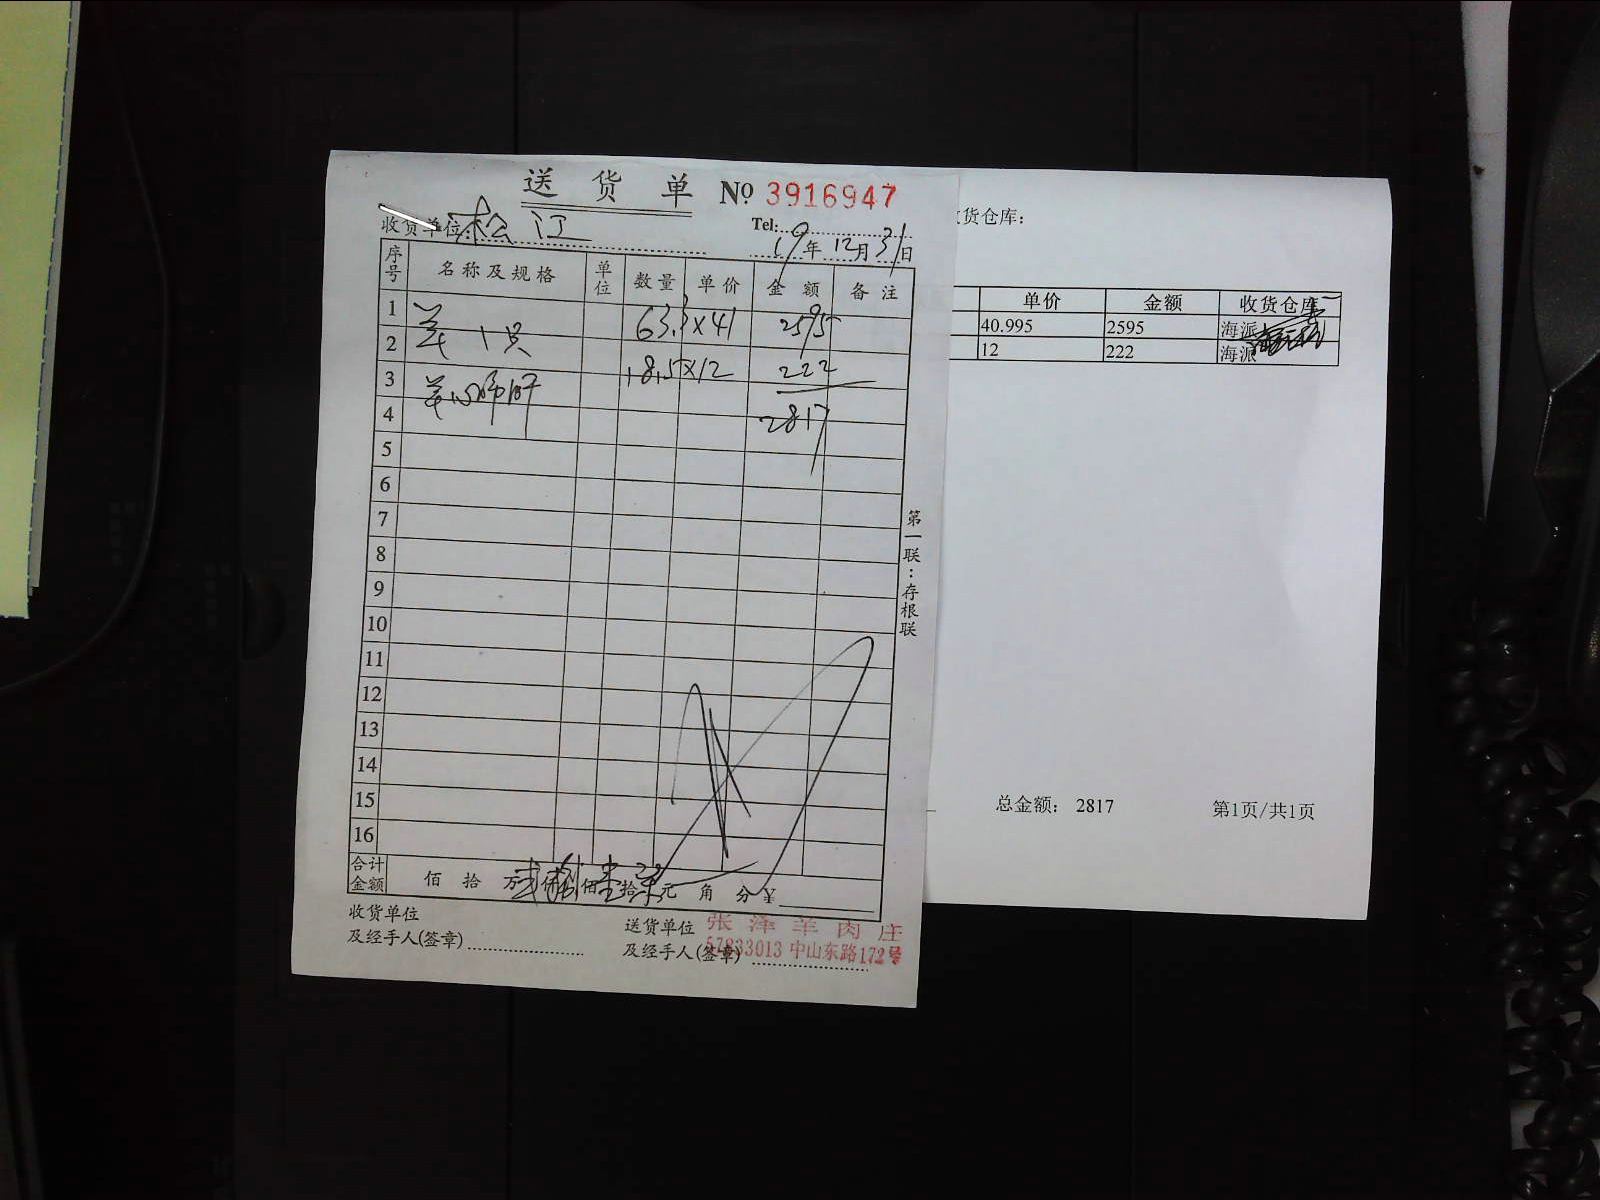 送 货 单 № 3916947
收货单位: 松江 Tel:
19年12月31日
序号 名称及规格 单位 数量 单价 金额 备注
1 63.3×41 2595
2 羊 1只 18.5×12 222
3 羊
4 2817
5
6
7
8
9
10
11
12
13
14
15
16
第一联:存根联
合计金额 佰 拾 万贰仟捌佰壹拾柒元 角 分 ¥
收货单位 送货单位 张泽羊肉庄
及经手人(签章) 及经手人(签章) 57833013 中山东路172号
货仓库:
单价 金额 收货仓库
40.995 2595 海派
12 222 海派
总金额: 2817 第1页/共1页